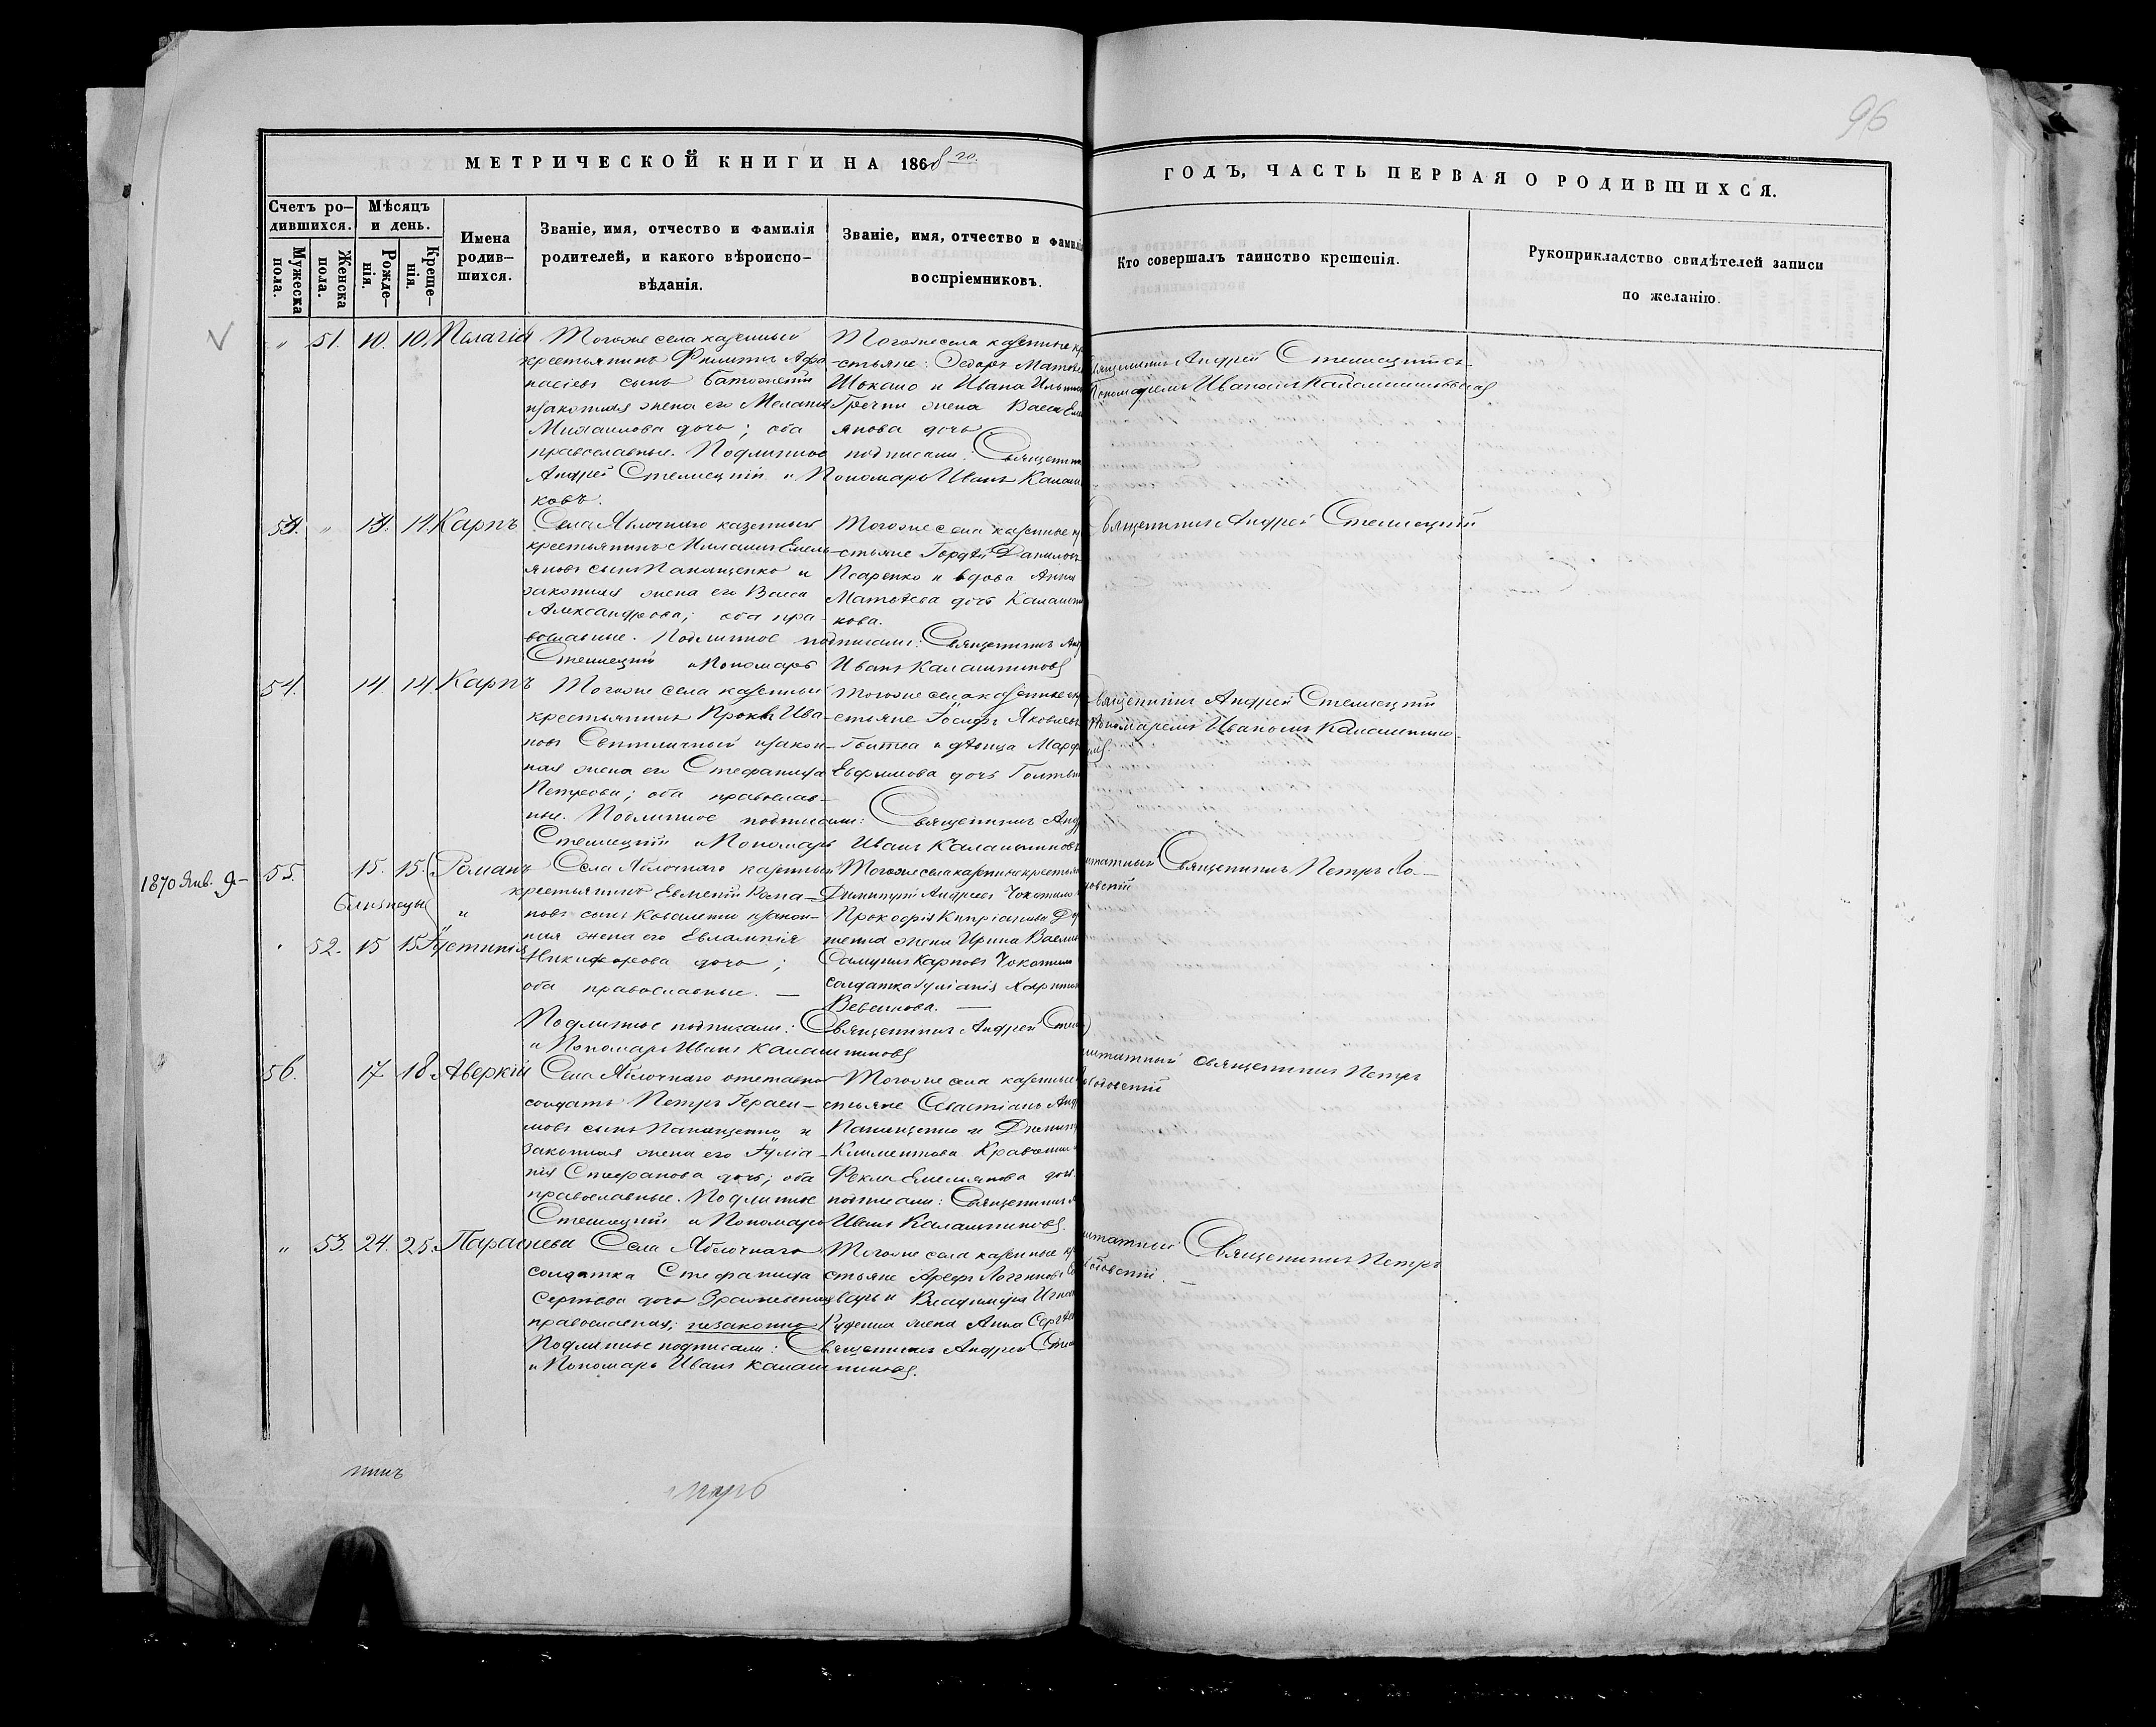 96
МЕТРИЧЕСКОЙ КНИГИ НА 1868 го.
ГОДЪ, ЧАСТЬ ПЕРВАЯ О РОДИВШИХСЯ.
Счетъ ро-
дившихся.
Мужеска
пола.
Женска
пола.
Мѣсяцъ
и день.
Рожде-
нія.
Креще-
нія.
Имена
родив-
шихся.
Званіе, имя, отчество и фамилія
родителей, и какого вѣроиспо-
вѣданія.
Званіе, имя, отчество и фамилія
воспріемниковъ.
Кто совершалъ таинство крещенія.
Рукоприкладство свидѣтелей записи
по желанію.
" 51. 10. 10. Пелагія
Тогоже села казенный
крестьянинъ Филиппъ Афа-
насіевъ сынъ
и законная жена его Меланія
Михаилова дочь; оба
православные. Подлинное подписали: Священникъ
Андрей Стеллецкій и Пономарь Иванъ Калашни
ковъ.
Тогоже села казенные кре
-стьяне: Ѳедоръ
и Ивана
жена Васса Емел
янова дочь
Священникъ Андрей Стеллецкій съ
Пономаремъ Иваномъ Калашниковымъ
53. " 13. 14. Карпъ
Села Яблочнаго казенный
крестьянинъ Михаилъ Емель-
яновъ сынъ Папанценко и
законная жена его Васса
Александрова; оба пра-
вославные. Подлинное подписали: Священникъ Анд
Стеллецкій и Пономарь Иванъ Калашниковъ
Тогоже села казенные кр
-стьяне Гордѣй Даниловъ
Псаренко и вдова Анна
Матвѣева дочь Калашни
кова.
Священникъ Андрей Стеллецкій
54. 14. 14. Карпъ
Тогоже села казенный
крестьянинъ Прокпъ Ива-
новъ Свѣтличный и закон-
ная жена его Стефанида
Петрова; оба православ-
ные. Подлинное подписали: Священникъ Анд
Стеллецкій и Пономарь Иванъ Калашниковъ
Тогоже села казенные кр
-стьяне Іосифъ Яковлевъ
и дѣвица Марфа
Евфимова дочь
Священникъ Андрей Стеллецкій
Пономаремъ Иваномъ Калашнико-
вымъ.
1870 Янв. 9-
55. 15. 15. Романъ
близнецы "
" 52. 15 15 Іустинія
Села Яблочнаго казенный
крестьянинъ Евменій Рома-
новъ сынъ Коваленко и закон-
ная жена его Евлампія
Никифорова дочь;
оба православные. —
Подлинное подписали: Священникъ Андрей Стел
и Пономарь Иванъ Калашниковъ
Тогоже села казенные крестьян
Димитрій Андреевъ
Прокофія Кипріанова
жена Ирина Васил
Самуилъ Карповъ
солдатка Іуліанія
—
штатный Священникъ Петръ Ло-
56. 17 18. Аверкій
Села Яблочнаго отставной
солдатъ Петръ Гераси-
мовъ сынъ Папанценко и
законная жена его Іуліа-
нія Стефанова дочь; оба
православные. Подлинное подписали: Священникъ А
Стеллецкій и Пономарь Иванъ Калашниковъ.
Тогоже села казенные
-стьяне Севастіанъ Анд
Папанценко и Димитр
Климентова Кравченка
Ѳекла Емельянова дочь.
штатный Священникъ Петръ
" 53. 24. 25. Параскева
Села Яблочнаго
солдатка Стефанида
Сергѣева дочь
православная; незаконно
Подлинное подписали: Священникъ Андрей Стел
и Пономарь Иванъ Калашниковъ.
Тогоже села казенные кр
стьяне Арефъ Логгиновъ
и Владиміра Игна
Руденка жена Анна Сергѣев
штатный Священникъ Петръ
никъ
марь